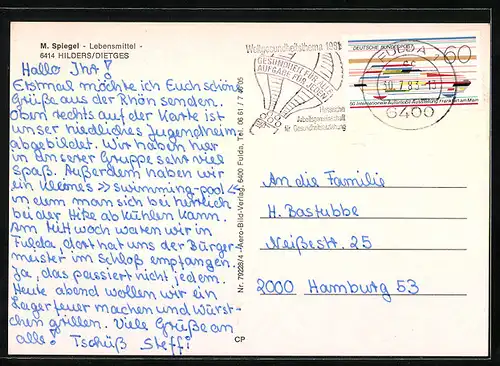 M. Spiegel - Lebensmittel -
6414 HILDERS/DIETGES
Hallo Ihr!
Erstmal möchte ich Euch schöne
Grüße aus der Rhön senden.
Oben rechts auf der Karte ist
unser niedliches Jugendheim
abgebildet. Wir haben hier
in unserer Gruppe sehr viel
Spaß. Außerdem haben wir
ein kleines »swimming-pool«
in dem man sich bei herrlich
bei der Hitze abkühlen kann.
Am Mittwoch waren wir in
Fulda, dort hat uns der Bürger-
meister im Schloß empfangen.
Ja, das passiert nicht jedem.
Heute abend wollen wir ein
Lagerfeuer machen und Würst-
chen grillen. Viele Grüße an
alle! Tschüß Steffi
Nr. 79228/4 - Aero-Bild-Verlag, 6400 Fulda, Tel. 06 61 / 7 76 05
CP
Weltgesundheitsthema 1983
GESUNDHEIT FÜR ALLE
AUFGABE FÜR ALLE
Hessische
Arbeitsgemeinschaft
für Gesundheitserziehung
DEUTSCHE BUNDESPOST
60
50. Internationale Automobil-Ausstellung Frankfurt am Main
FULDA
30.7.83-13
6400
An die Familie
H. Bastubbe
Neißestr. 25
2000 Hamburg 53